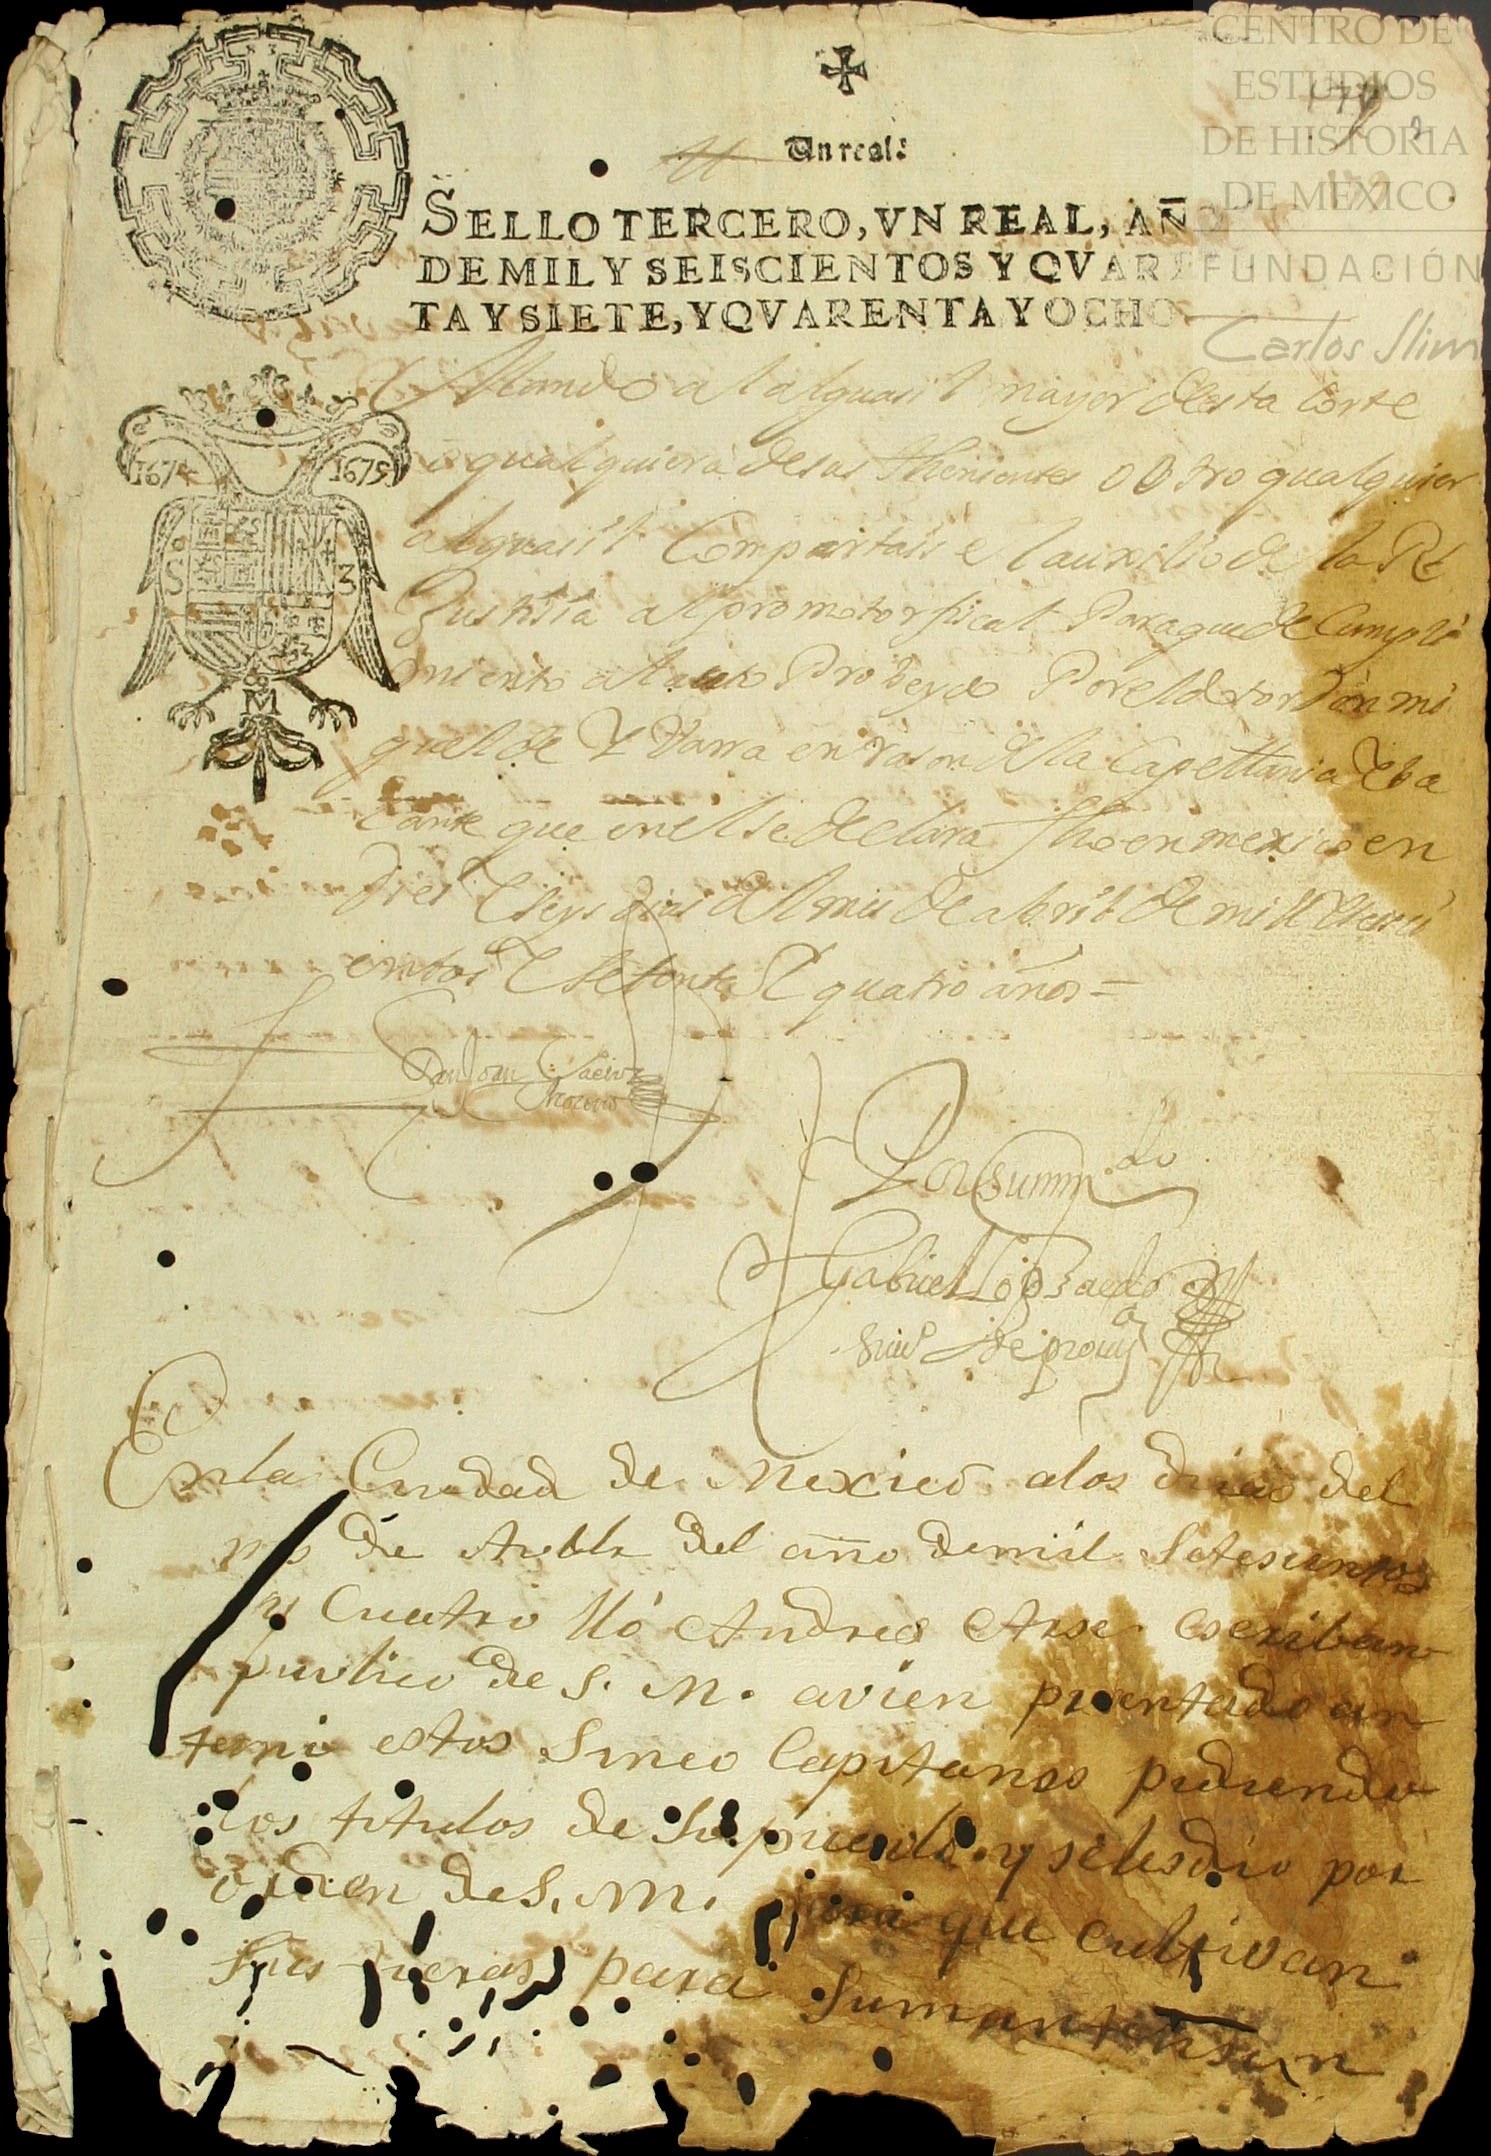 CENTRO DE
ESTUDIOS
DE HISTORIA
DE MEXICO
FUNDACIÓN
Carlos Slim
Un real.
SELLO TERCERO, VN REAL, AÑO
DE MIL Y SEISCIENTOS Y QVAREN
TA Y SIETE, Y QVARENTA Y OCHO
1674 1675
S 3
M
Mando al alguasil mayor desta corte
o qualquiera de sus thenientes o otro qualquier
alguasil Compartais el auxilio de la Rl
Justisia al promotor fiscal Para que de Cumpli
miento al auto Probeydo Por el dotor Don mi
guel de Y Varra en rason de la Capellania Eba
cante que en el se declara fho en mexico en
Dies E seys dias del mes de abril de mill E seisci
entos E Setenta E quatro años =
Por su mdo
Gabriel
En la Ciudad de Mexico a los dias del
mes de del año de mil Setesientos
y Cuatro Yo Andres Arse escribano
publico de S. M. avien presentado an
te mi estos Sinco Capitanes pidiendo
los titulos de Su pueblo y se les dio por
orden de S. M. para que cultivan
sus tieras para Su mantension